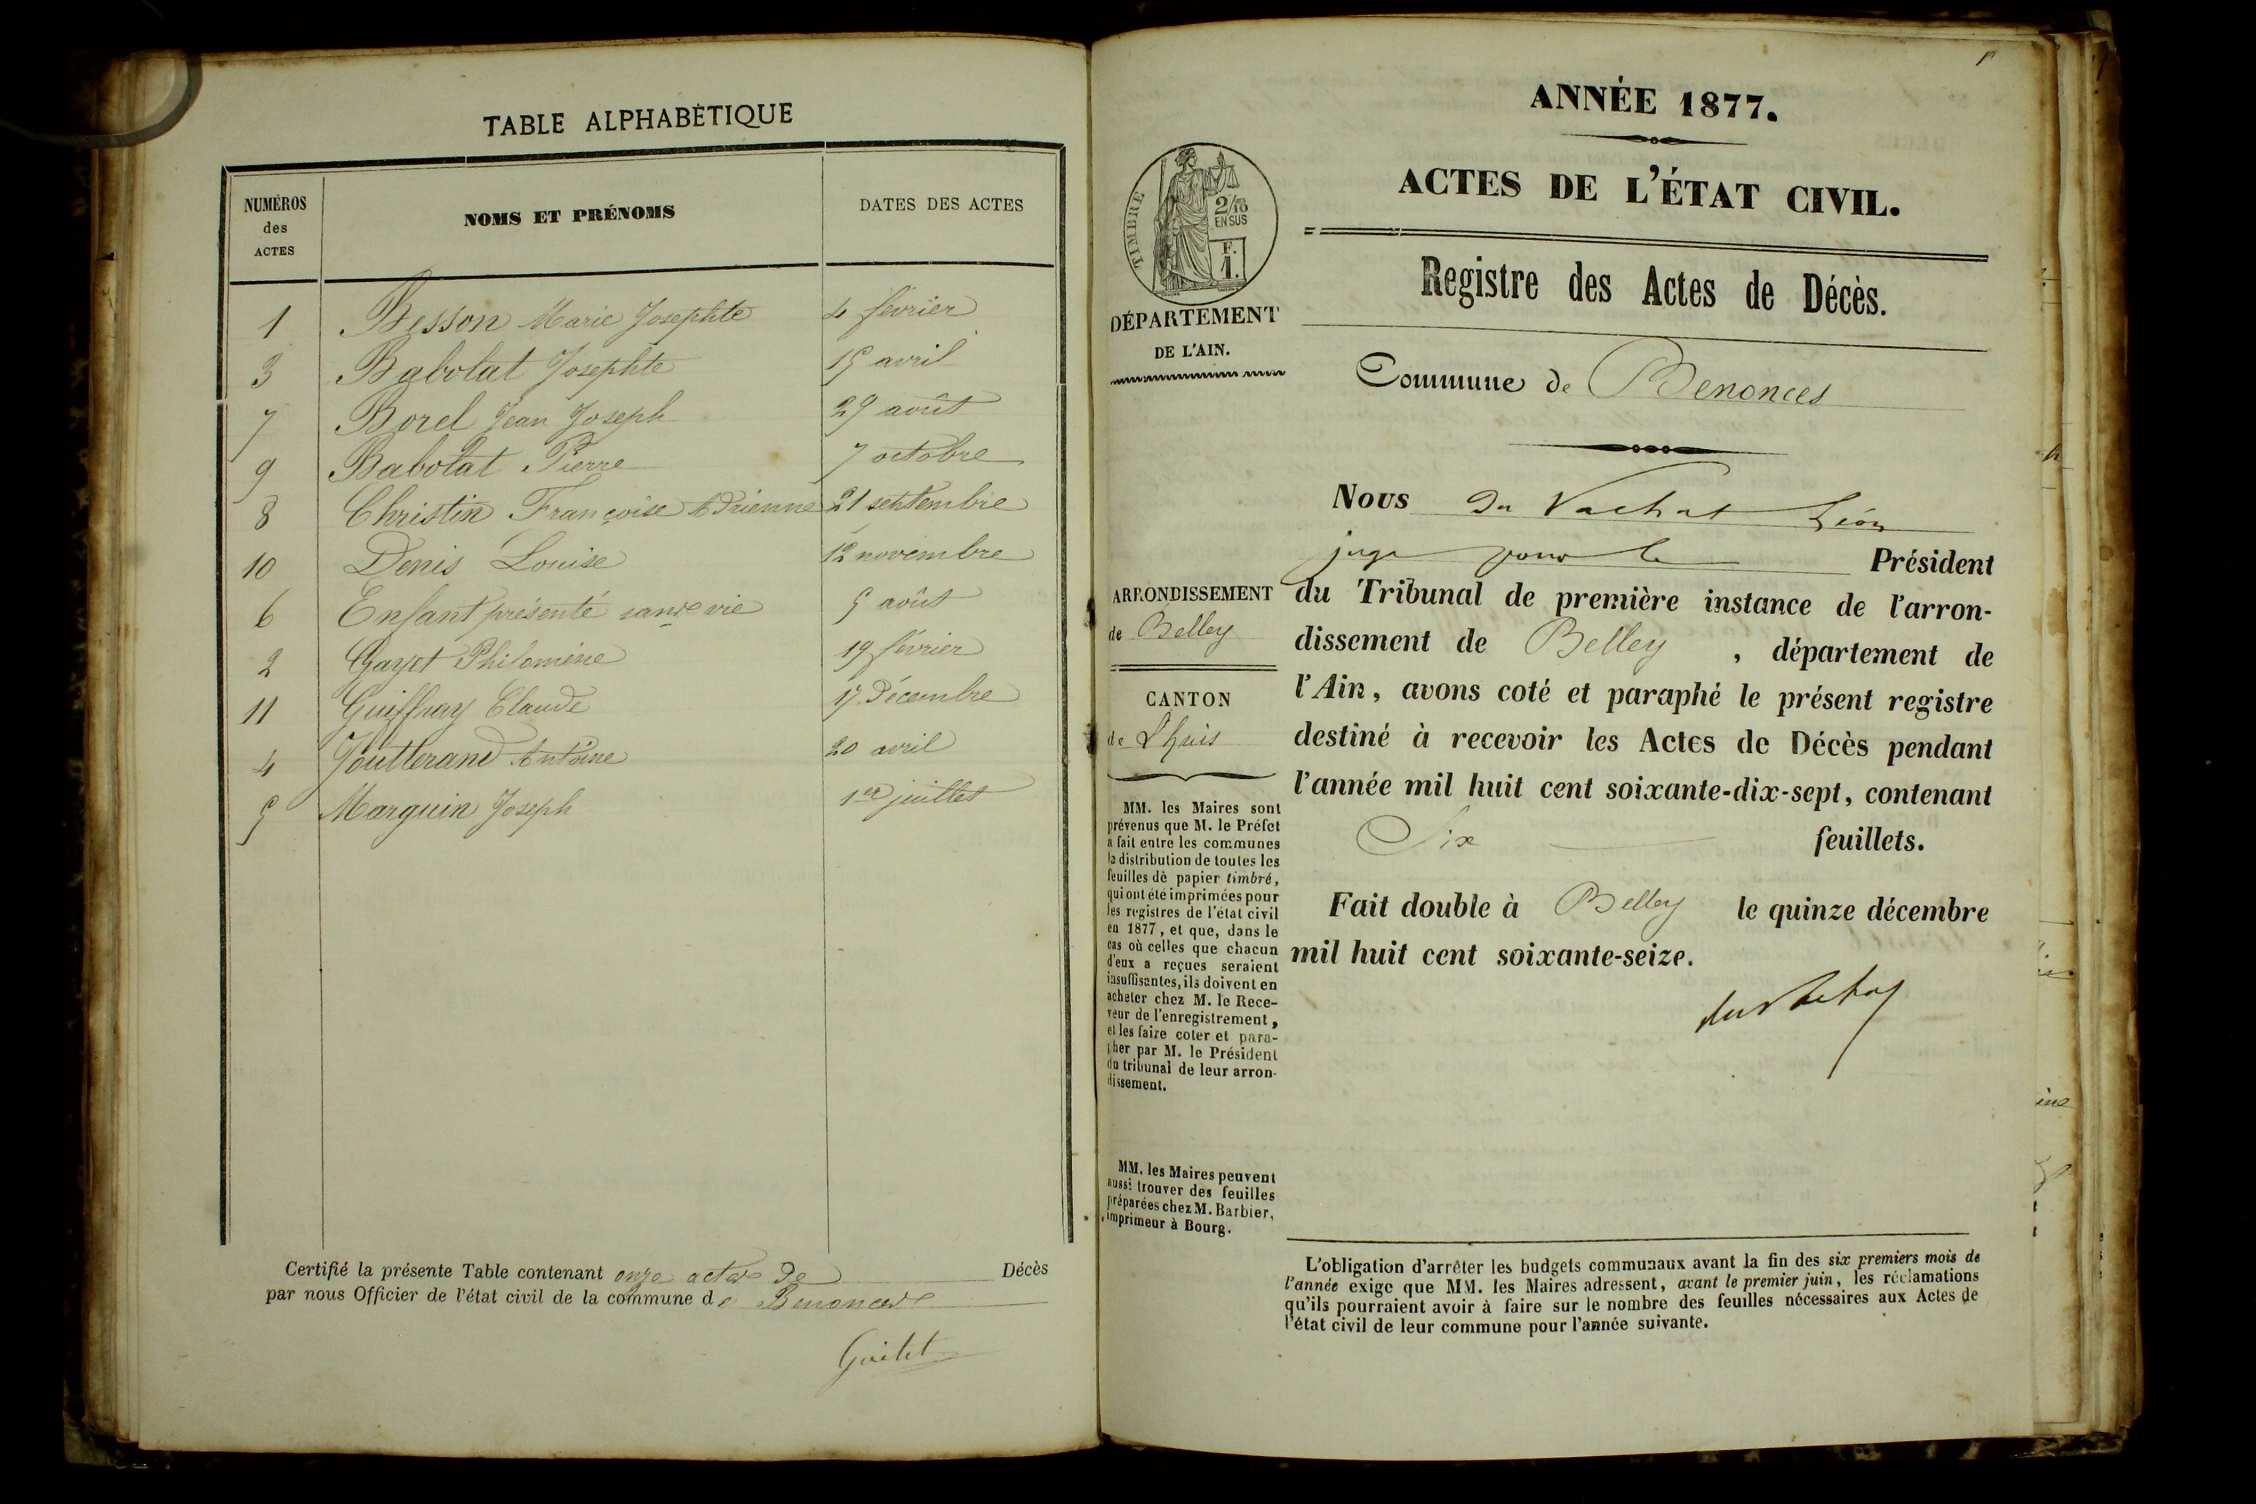 TABLE ALPHABÉTIQUE
NUMÉROS des ACTES
NOMS ET PRÉNOMS
DATES DES ACTES
1 Besson Marie Josephte 4 février
3 Babolat Josephte 15 avril
7 Borel Jean Joseph 29 août
9 Babolat Pierre 7 octobre
8 Christin Françoise Adrienne 21 septembre
10 Denis Louise 12 novembre
6 Enfant présenté sans vie 5 août
2 Gayot Philomène 19 février
11 Guiffray Claude 17 Décembre
4 Joutterand Antoine 20 avril
5 Marguin Joseph 1er juillet
Certifié la présente Table contenant onze actes de Décès
par nous Officier de l'état civil de la commune de Benonces
1
ANNÉE 1877.
ACTES DE L'ÉTAT CIVIL.
Registre des Actes de Décès.
TIMBRE
2/10
EN SUS
F.
1.
DÉPARTEMENT
DE L'AIN.
Commune de Benonces
Nous du Vachat Léon
juge pour le Président
du Tribunal de première instance de l'arron-
dissement de Belley, département de
l'Ain, avons coté et paraphé le présent registre
destiné à recevoir les Actes de Décès pendant
l'année mil huit cent soixante-dix-sept, contenant
Six feuillets.
Fait double à Belley le quinze décembre
mil huit cent soixante-seize.
duVachat
ARRONDISSEMENT
de Belley
CANTON
de Lhuis
MM. les Maires sont
prévenus que M. le Préfet
a fait entre les communes
la distribution de toutes les
feuilles de papier timbré,
qui ont été imprimées pour
les registres de l'état civil
en 1877, et que, dans le
cas où celles que chacun
d'eux a reçues seraient
insuffisantes, ils doivent en
acheter chez M. le Rece-
veur de l'enregistrement,
et les faire coter et para-
pher par M. le Président
du tribunal de leur arron-
dissement.
MM. les Maires peuvent
aussi trouver des feuilles
préparées chez M. Barbier,
imprimeur à Bourg.
L'obligation d'arrêter les budgets communaux avant la fin des six premiers mois de
l'année exige que MM. les Maires adressent, avant le premier juin, les réclamations
qu'ils pourraient avoir à faire sur le nombre des feuilles nécessaires aux Actes de
l'état civil de leur commune pour l'année suivante.